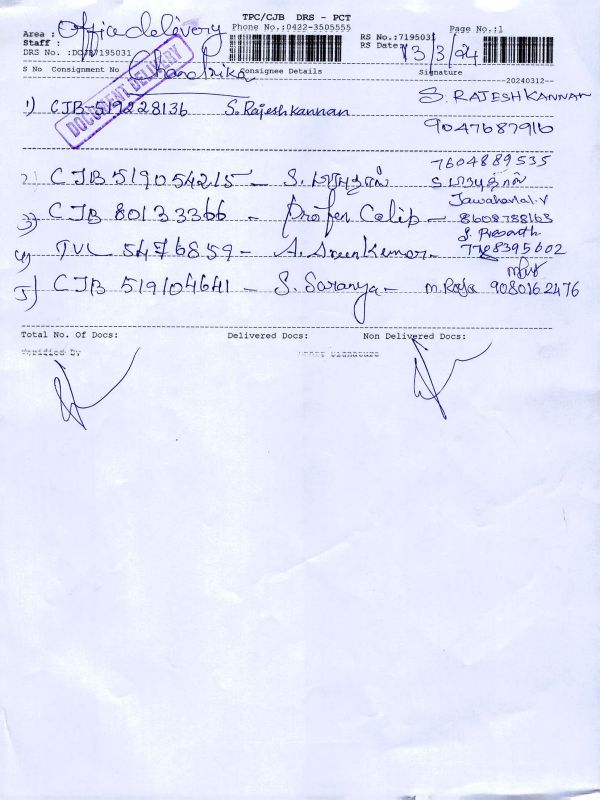 TPC/CJB DRS - PCT
Area : Office delivery Phone No.:0422-3505555 Page No.:1
Staff : RS No.:7195031
RS Date: 13/3/24
DRS No. :DCJB7195031
Chandrika
S No Consignment No Consignee Details Signature
--20240312--
DOCUMENT DELIVERY
S. RAJESH KANNAN
1) CJB-519228136 S. Rajesh kannan
9047687916
7604889535
2) CJB 519054215 - S.
Jawaharlal.V
3) CJB 80133366 - 8608788163
S. Prasanth
4) TVL 5476859 - A. Arunkumar - 7708395602
5) CJB 519104641 - S. Saranya - M. Raja 9080162476
Total No. Of Docs: Delivered Docs: Non Delivered Docs:
Verified by Signature